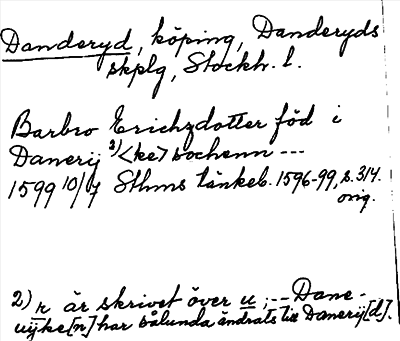 Danderyd, köping, Danderyds
skplg, Stockh. l.
Barbro Erichzdotter föd i
Danerij 2) <ke> sochenn ---
1599 10/7 Sthms tänkeb. 1596-99, s. 314.
orig.
2) r är skrivet över u ; -- Dane-
uijke[n] har sålunda ändrats till Danerij[d].